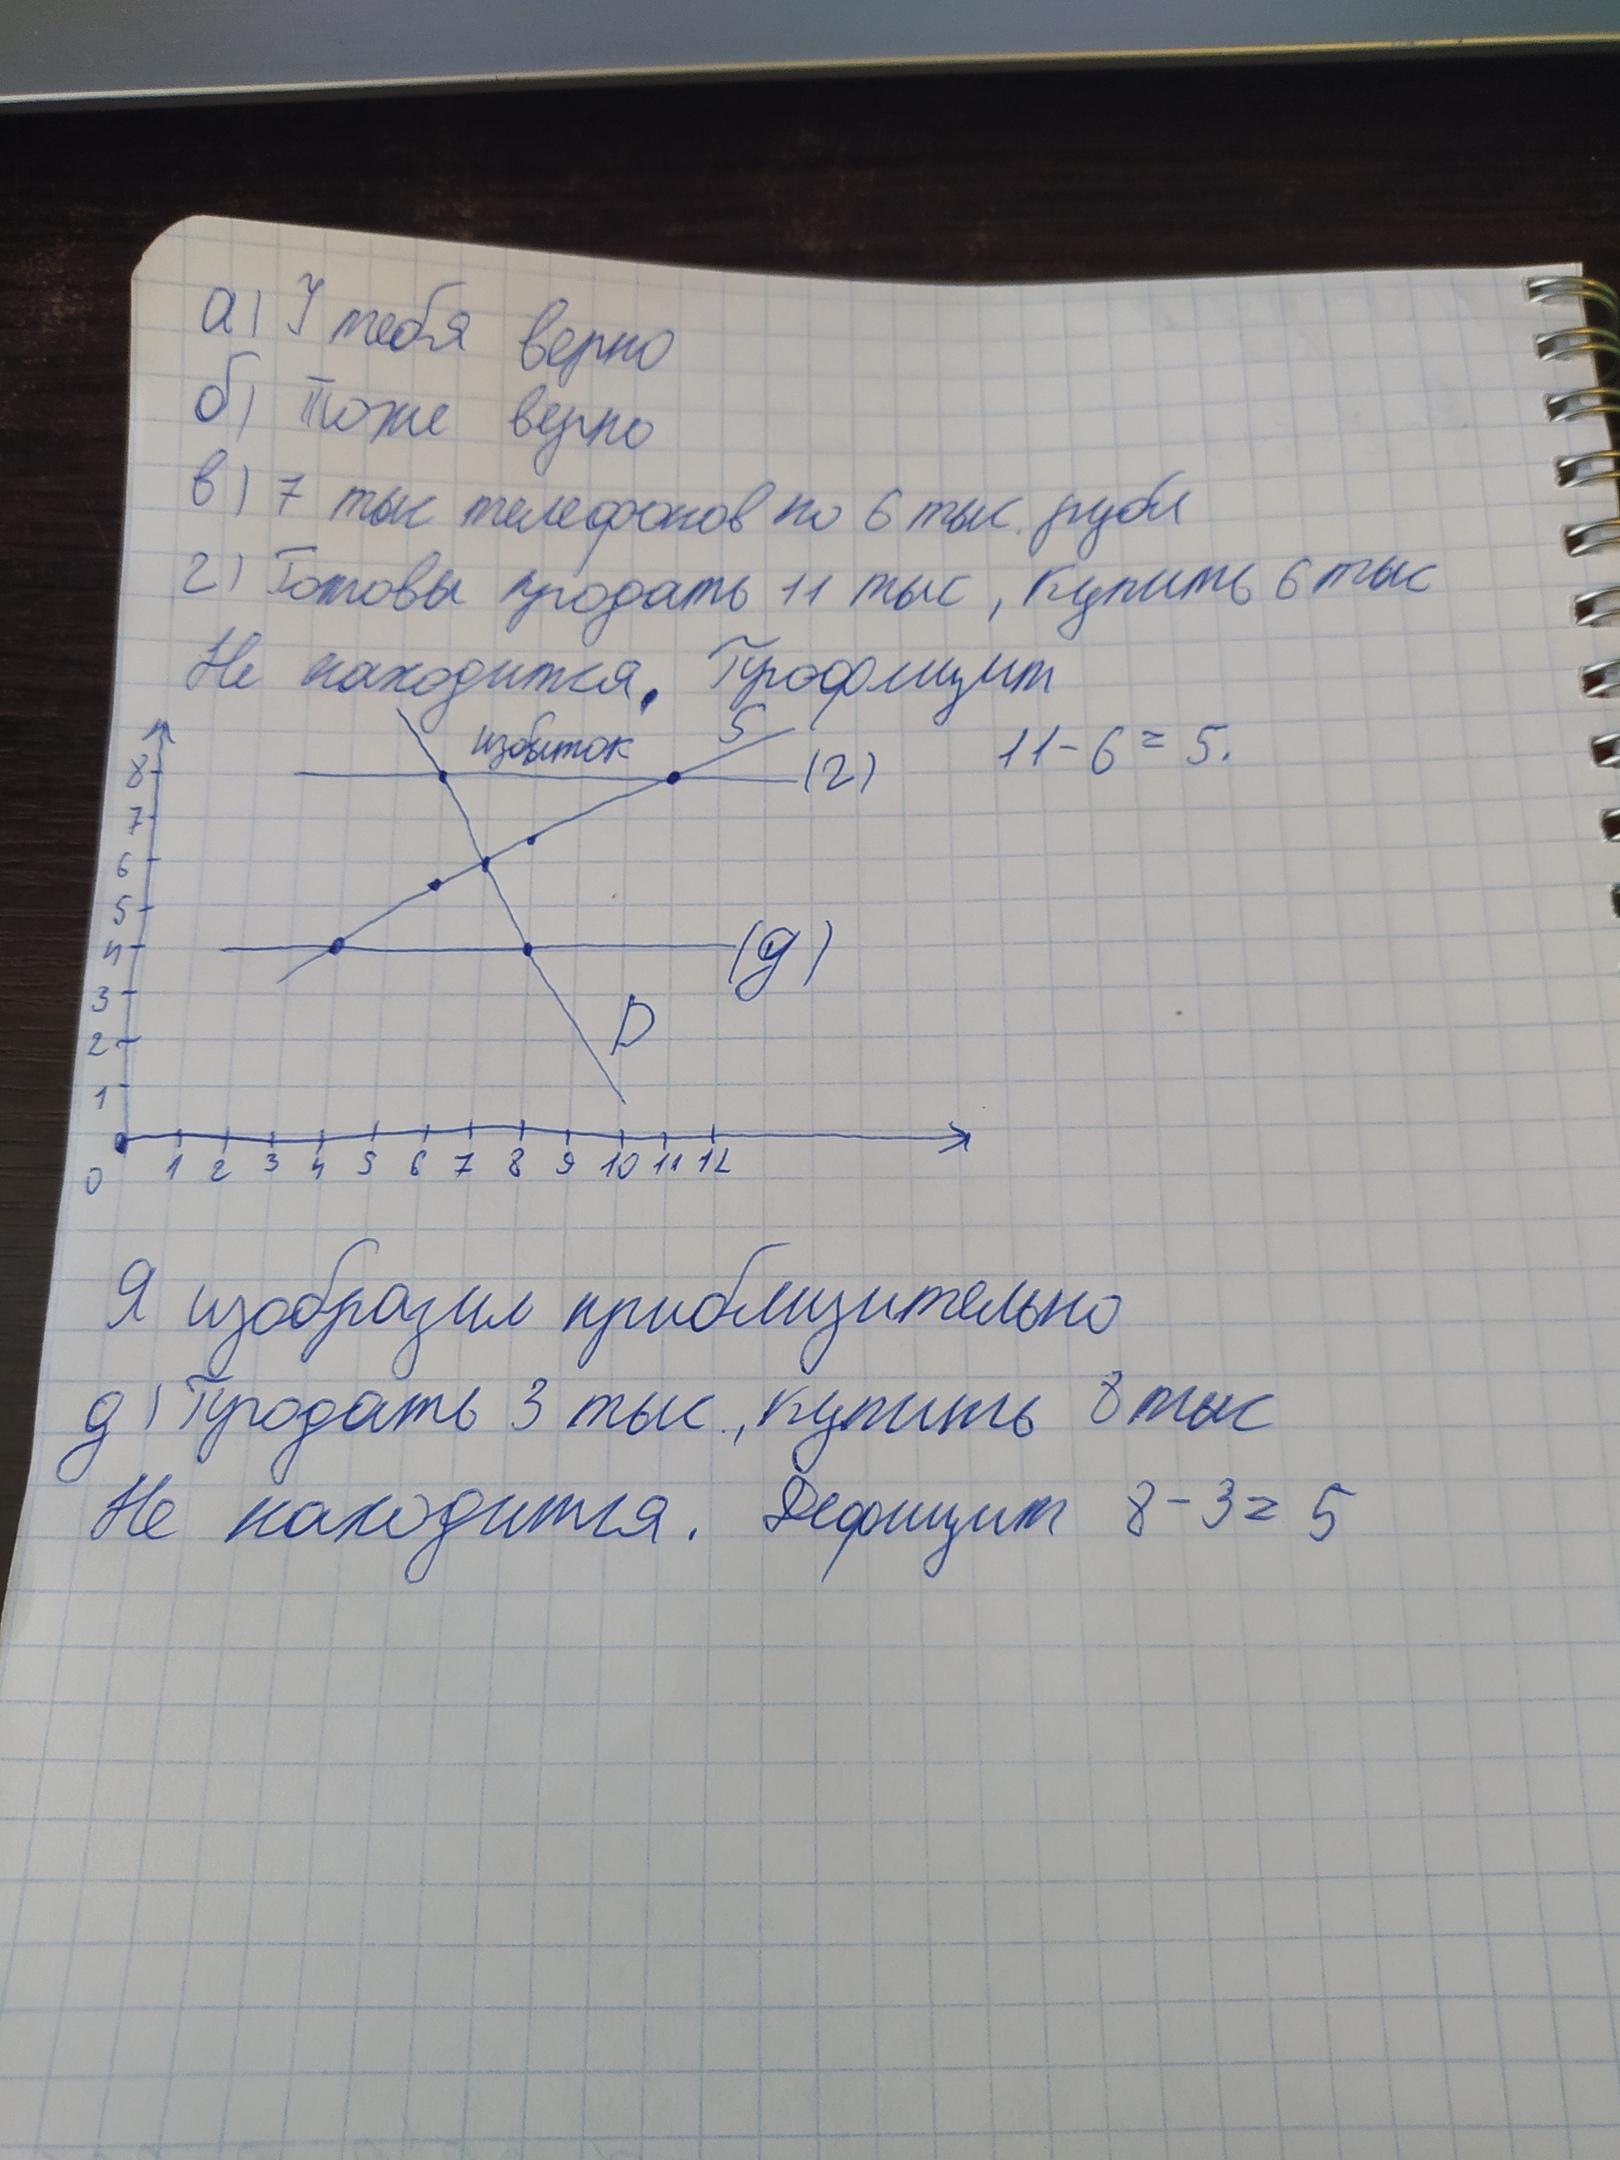 а) У тебя верно
б) Тоже верно
в) 7 тыс телефонов по 6 тыс. рубл
г) Готовы продать 11 тыс, купить 6 тыс
Не находится. Профицит
11 - 6 = 5.
избыток S
8 (г)
7
6
5
4 (д)
3
2 D
1
0 1 2 3 4 5 6 7 8 9 10 11 12
Я изобразил приблизительно
д) Продать 3 тыс., купить 8 тыс
Не находится. Дефицит 8 - 3 = 5